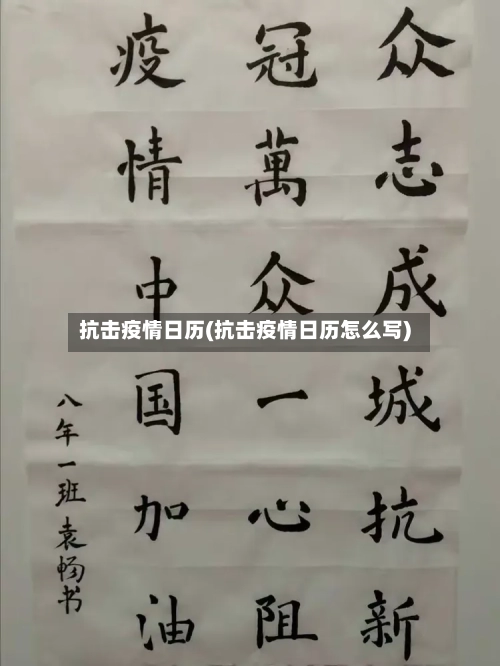 众志成城抗新
冠萬众一心阻
疫情中国加油
八年一班袁畅书
抗击疫情日历(抗击疫情日历怎么写)